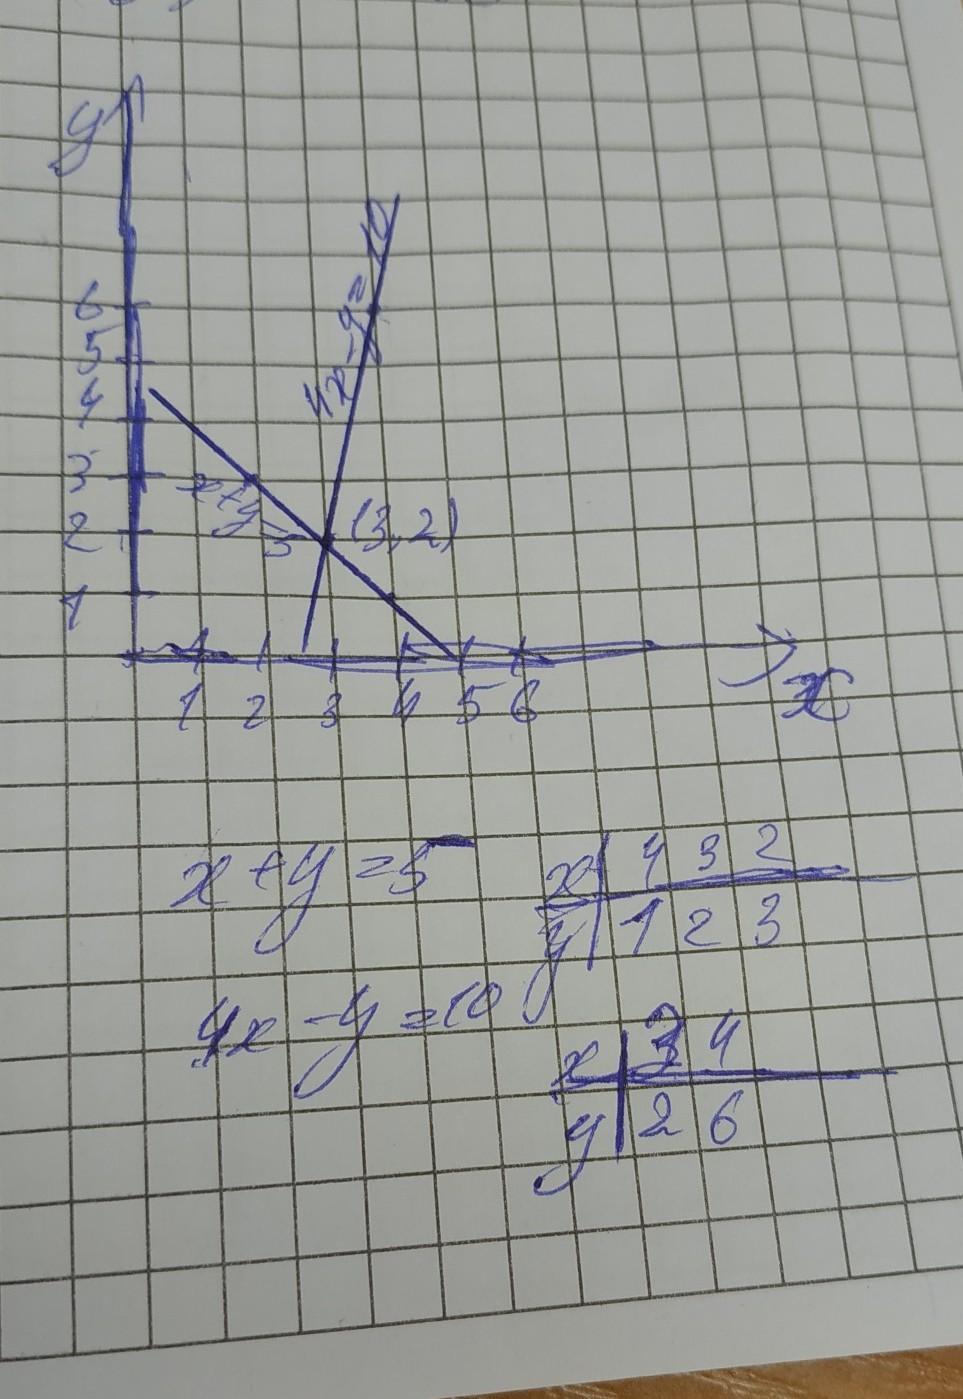 y
6
5
4
3
2
1
4x-y=10
x+y=5
(3,2)
1 2 3 4 5 6
x
x+y=5
x 4 3 2
y 1 2 3
4x-y=10
x 3 4
y 2 6